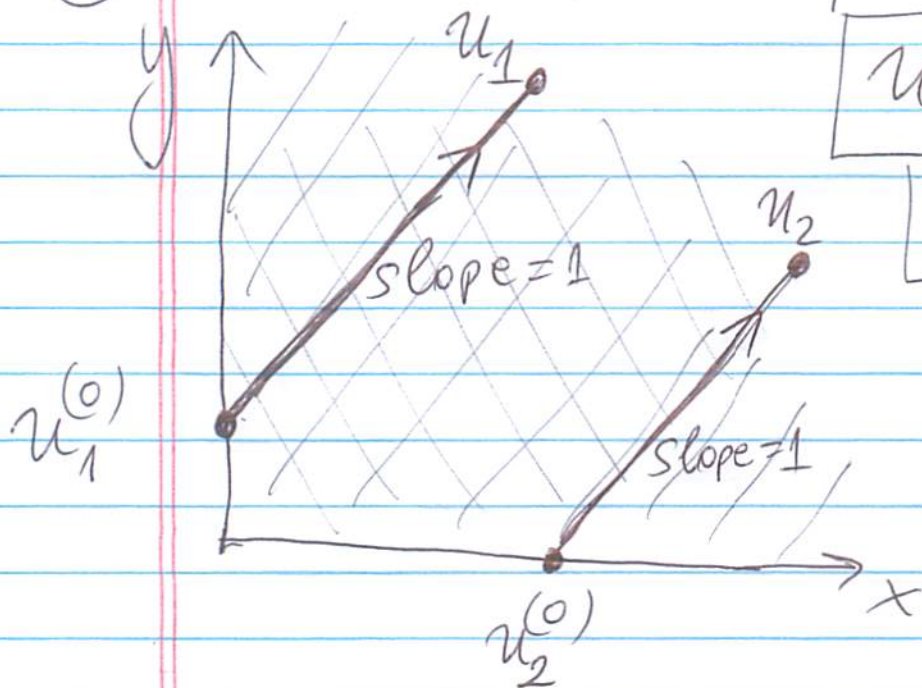 y
u₁
u
u₂
slope=1
u₁⁽⁰⁾
slope=1
x
u₂⁽⁰⁾